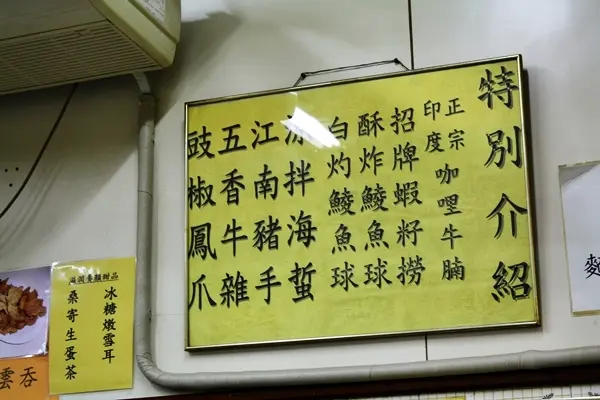 特別介紹
正宗
印度
咖哩牛腩
招牌蝦籽撈
酥炸鯪魚球
白灼鯪魚球
涼拌海蜇
江南豬手
五香牛雜
豉椒鳳爪
滋潤養顏甜品
冰糖燉雪耳
桑寄生蛋茶
雲吞
麵